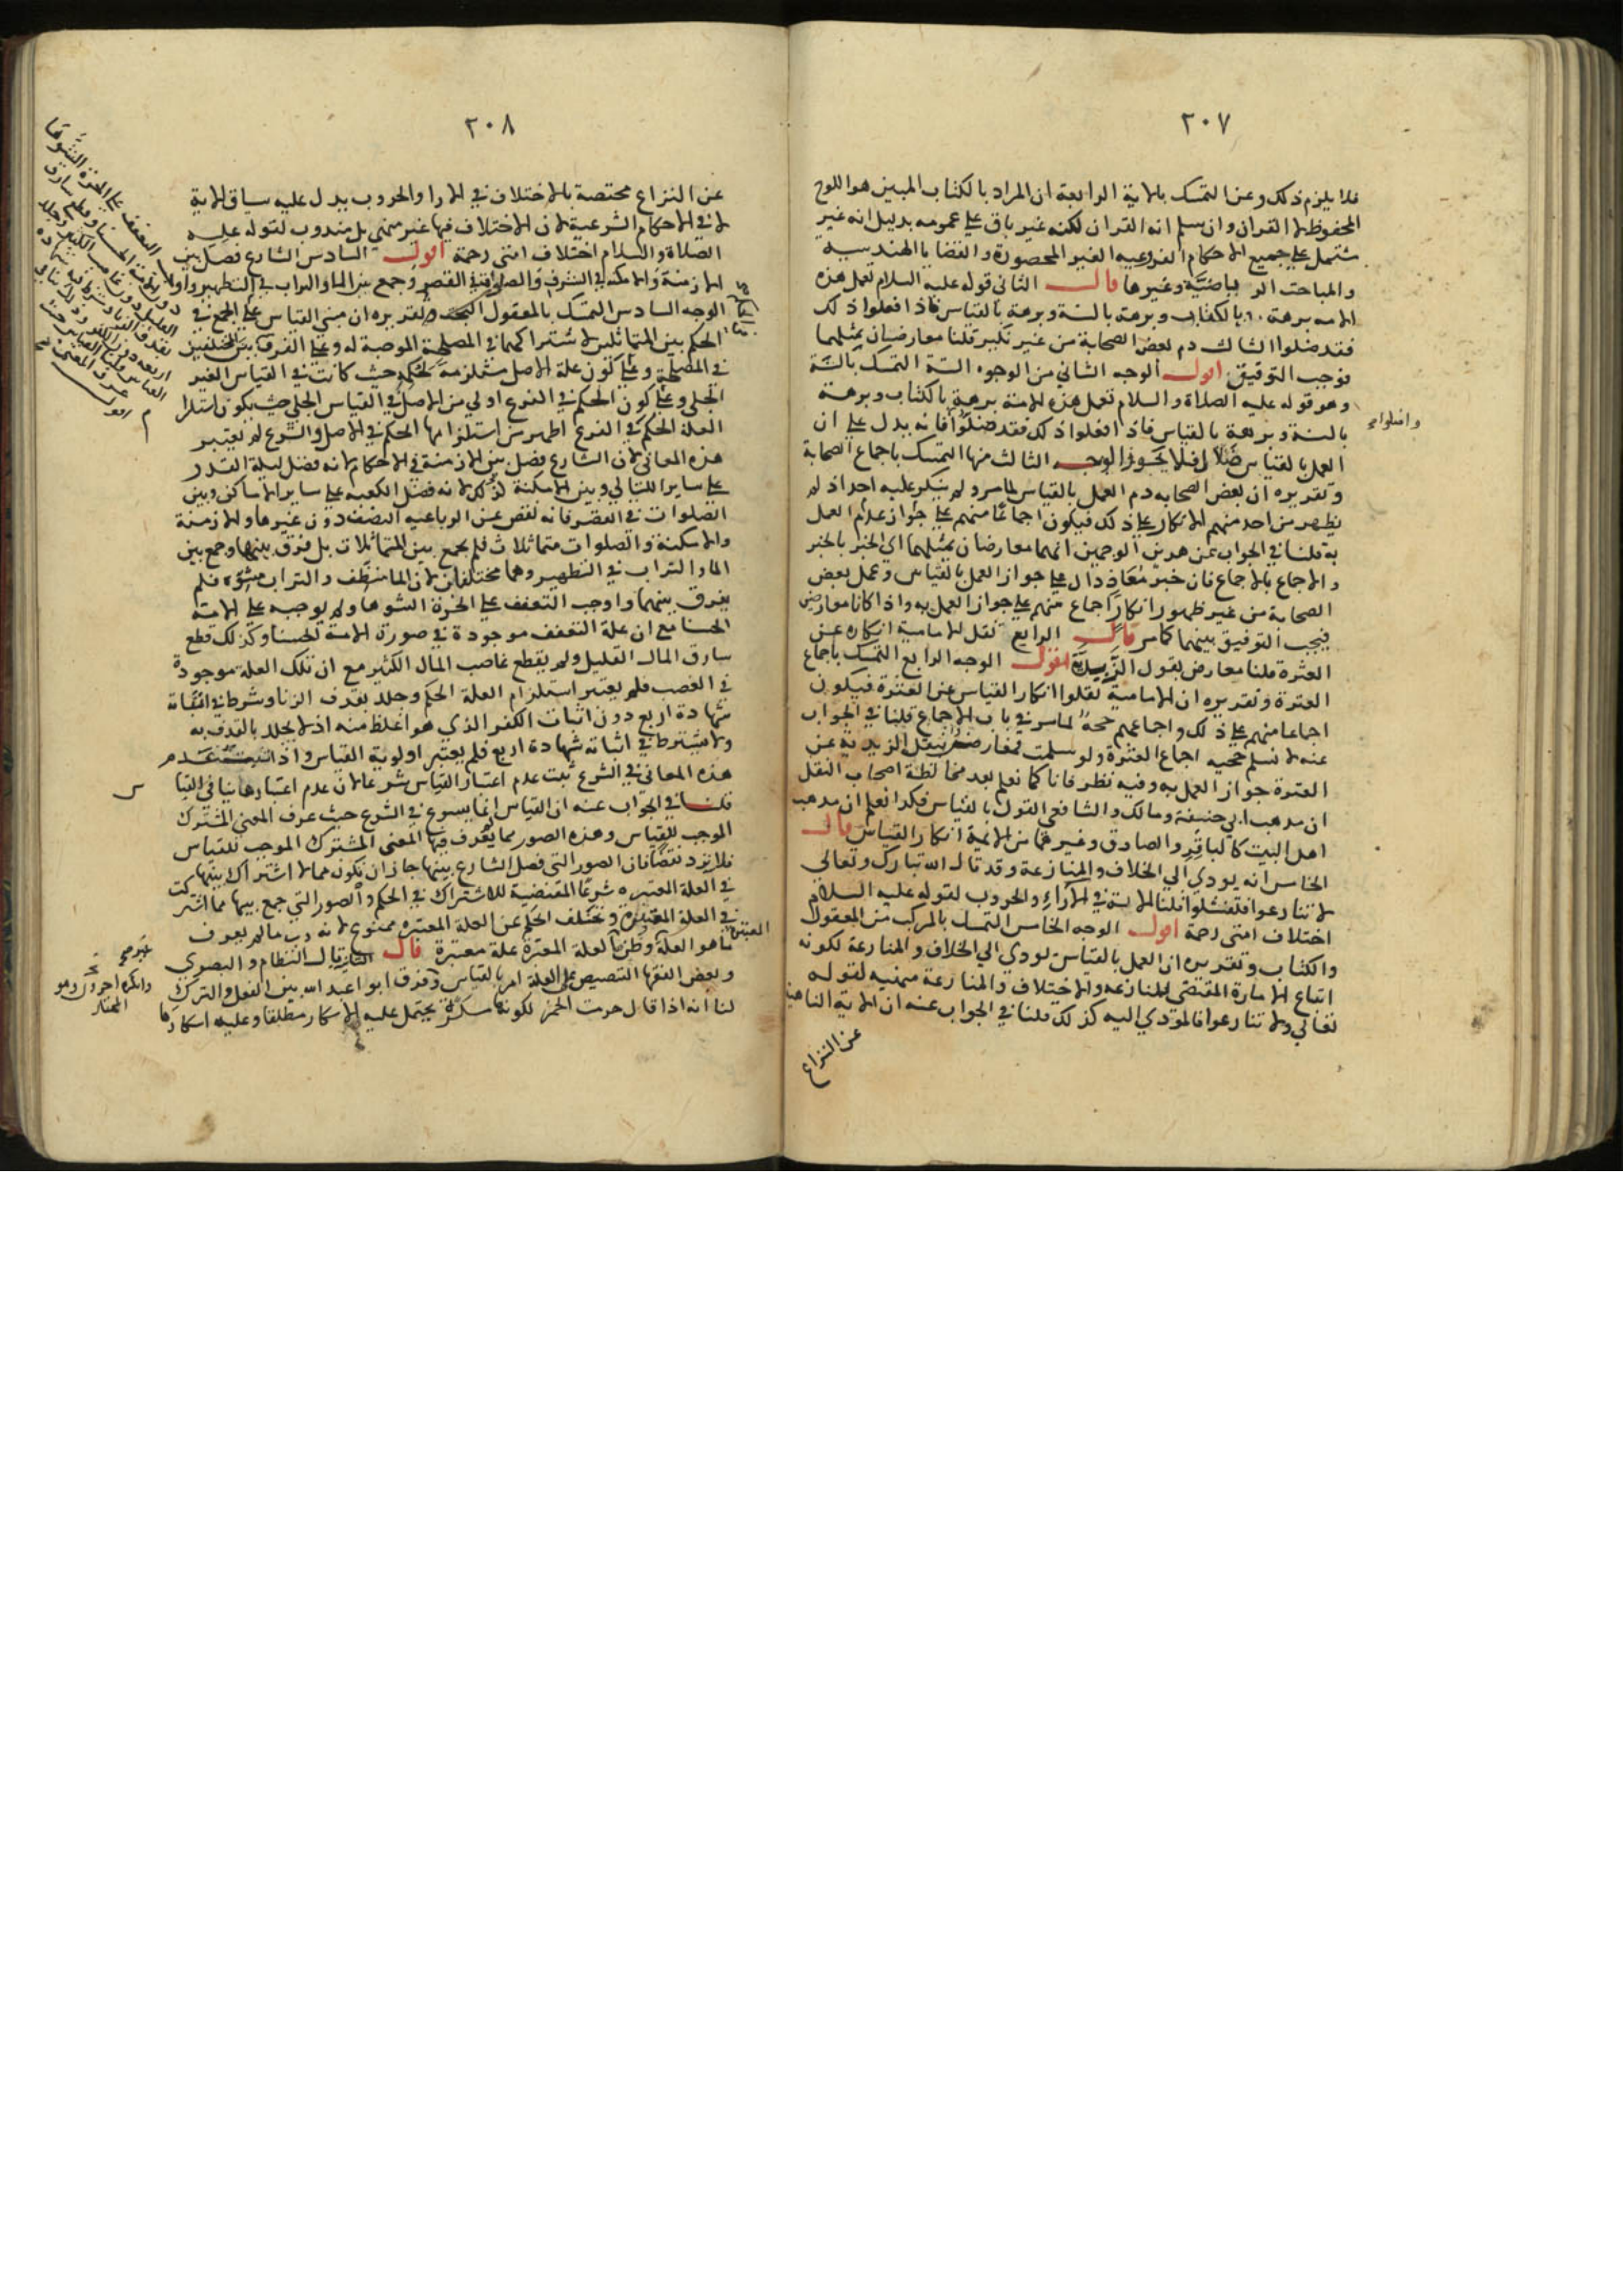 ٢٠٧
فلا يلزم ذلك وعن التمسك بالاية الرابعة ان المراد بالكتاب المبين هو اللوح
المحفوظ لا القران وان سلم انه القران لكنه غير باق على عمومه بدليل انه غير
مشتمل على جميع الاحكام الفروعيه الغير المحصورة والقضايا الهندسية
والمباحث الرياضية وغيرها قال الثاني قوله عليه السلام تعمل هذه
الامه برهة بالكتاب وبرهة بالسنة وبرهة بالقياس فاذا فعلوا ذلك
فقد ضلوا الثالث ذم بعض الصحابة من غير نكير قلنا معارضان بمثلهما
فوجب التوفيق اقول الوجه الثاني من الوجوه الستة التمسك بالسنة
وهو قوله عليه الصلاة والسلام تعمل هذه الامة برهة بالكتاب وبرهة
بالسنة وبرهة بالقياس فاذا فعلوا ذلك فقد ضلوا فانه يدل على ان
واضلوا صح
العمل بالقياس ضلال فلا يجوز الوجه الثالث منها التمسك باجماع الصحابة
وتقريره ان بعض الصحابه ذم العمل بالقياس لما مر ولم ينكر عليه احد اذ لم
يظهر من احد منهم الانكار على ذلك فيكون اجماعا منهم على جواز عدم العمل
به قلنا في الجواب عن هذين الوجهين انهما معارضان بمثلهما اي الخبر بالخبر
والاجماع بالاجماع فان خبر معاذ دال على جواز العمل بالقياس وعمل بعض
الصحابة من غير ظهور انكار اجماع منهم على جواز العمل به واذا كانا معارضين
فيجب التوفيق بينهما كما مر قال الرابع نقل الامامية انكاره عن
العترة قلنا معارض بقول الزيدية اقول الوجه الرابع التمسك باجماع
العترة وتقريره ان الامامية نقلوا انكار القياس عن العترة فيكون
اجماعا منهم على ذلك واجماعهم حجة لما مر في باب الاجماع قلنا في الجواب
عنه لا نسلم حجيه اجماع العترة ولو سلمت فمعارض بنقل الزيديه عن
العترة جواز العمل به وفيه نظر فانا كما نعلم بعد مخالطة اصحاب النقل
ان مذهب ابي حنيفة ومالك والشافعي القول بالقياس فكذا نعلم ان مذهب
اهل البيت كالباقر والصادق وغيرهما من الائمة انكار القياس قال
الخامس انه يودي الى الخلاف والمنازعة وقد قال الله تبارك وتعالى
لا تنازعوا فتفشلوا قلنا الاية في الآراء والحروب لقوله عليه السلام
اختلاف امتي رحمة اقول الوجه الخامس التمسك بالمركب من المعقول
والكتاب وتقريره ان العمل بالقياس يودي الى الخلاف والمنازعة لكونه
اتباع الامارة المقتضى للمنازعه والاختلاف والمنازعة منهيه لقوله
تعالى ولا تنازعوا فالمودي اليه كذلك قلنا في الجواب عنه ان الاية الناهية
عن النزاع
٢٠٨
عن النزاع مختصة بالاختلاف في الارا والحروب يدل عليه سياق الاية
لا في الاحكام الشرعية لان الاختلاف فيها غير منهي بل مندوب لقوله عليه
الصلاة والسلام اختلاف امتي رحمة اقول السادس الشارع فصل بين
الازمنة والامكنه في الشرف والصلوات في القصر وجمع بين الما والتراب في التطهير واوجب
التعفف على الحرة الشوها
دون الامة الحسنا وقطع سارق
القليل دون غاصب الكثير وجلد
بقذف الزنا وشرط فيه شهادة
اربعه دون الكفر
القياس قلنا القياس حيث
عرف المعنى
اقول
الوجه السادس التمسك بالمعقول وتقريره ان مبنى القياس على الجمع في
الحكم بين المتماثلين لاشتراكهما في المصلحة الموجبة له وعلى الفرق بين المختلفين
في المصلحة وعلى كون علة الاصل مستلزمة لحكمه حيث كانت في القياس الغير
الجلي وعلى كون الحكم في الفرع اولى من الاصل في القياس الجلي حيث يكون استلزام
العلة الحكم في الفرع اظهر من استلزامها الحكم في الاصل والشرع لم يعتبر
هذه المعاني لان الشارع فصل بين الازمنة في الاحكام لانه فضل ليلة القدر
على ساير الليالي وبين الامكنة كذلك لانه فضل الكعبه على ساير الاماكن وبين
الصلوات في القصر فانه نقص عن الرباعيه النصف دون غيرها والازمنة
والامكنة والصلوات متماثلات فلم يجمع بين المتماثلات بل فرق بينها وجمع بين
الما والتراب في التطهير وهما مختلفان لان الما منظف والتراب مشوه فلم
يفرق بينهما واوجب التعفف على الحرة الشوها ولم يوجبه على الامة
الحسنا مع ان علة التعفف موجودة في صورة الامة الحسنا وكذلك قطع
سارق المال القليل ولم يقطع غاصب المال الكثير مع ان تلك العلة موجودة
في الغصب فلم يعتبر استلزام العلة الحكم وجلد بقذف الزنا وشرط في اثباته
شهادة اربع دون اثبات الكفر الذي هو اغلظ منه اذ لا يجلد بالقذف به
ولا يشترط في اثباته شهادة اربع فلم يعتبر اولوية القياس واذا عدم
هذه المعاني في الشرع ثبت عدم اعتبار القياس شرعا لان عدم اعتبارها ينافي القيا
س
قلنا في الجواب عنه ان القياس انما يسوغ في الشرع حيث عرف المعنى المشترك
الموجب للقياس وهذه الصور مما يعرف فيها المعنى المشترك الموجب للقياس
فلا ترد نقضا فان الصور التي فصل الشارع بينها جاز ان تكون مما لا اشتراك بينها
في العلة المعتبره شرعا المقتضية للاشتراك في الحكم والصور التي جمع بينها مما اشتركت
في العلة المعتبرة وتخلف الحكم عن العلة المعتبره ممنوع لانه رب ما لم يعرف
ما هو العلة وظن العلة المعتبرة علة معتبرة قال الثانية قال النظام والبصري
وبعض الفقها التنصيص على العلة امر بالقياس وفرق ابو عبد الله بين الفعل والترك
غير صح
وانكره اخرون وهو
المختار
لنا انه اذا قال حرمت الخمر لكونها مسكرة يحتمل عليه الاسكار مطلقا وعليه اسكارها